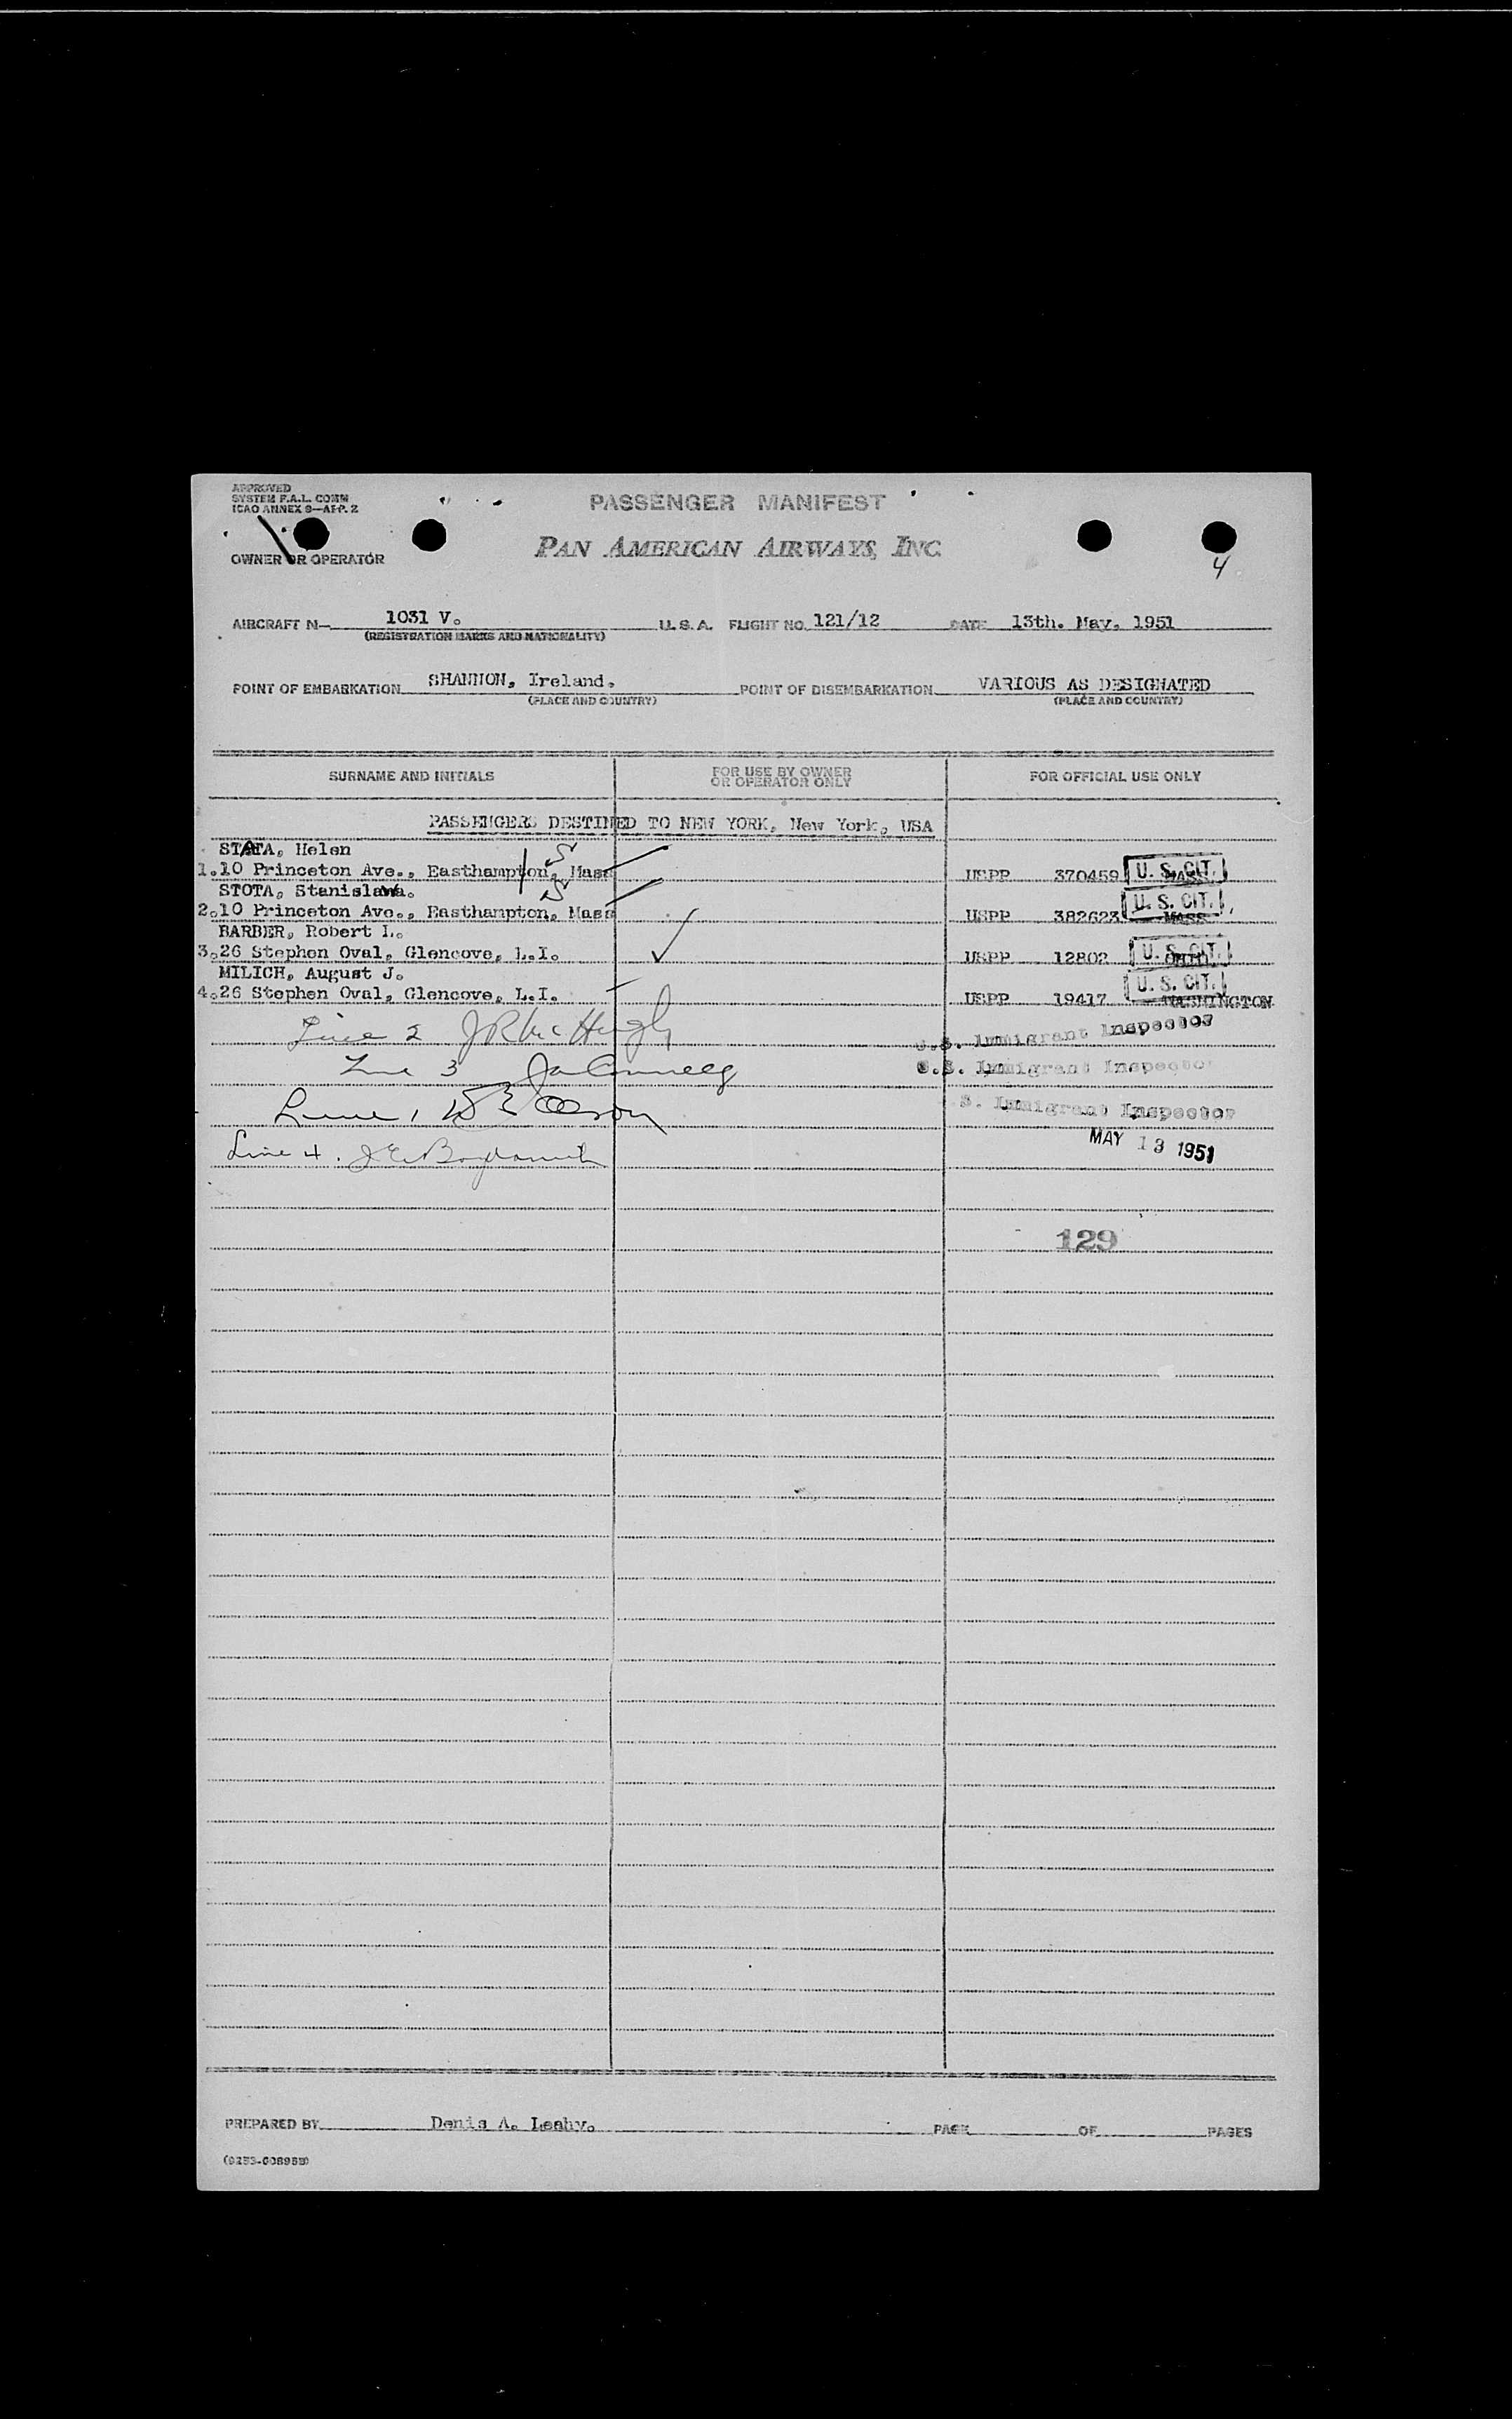 APPROVED
SYSTEM F.A.L. COMM
ICAO ANNEX 9—APP. 2
PASSENGER MANIFEST
OWNER OR OPERATOR
PAN AMERICAN AIRWAYS, INC.
4
AIRCRAFT N— 1031 V. U.S.A. FLIGHT NO. 121/12 DATE 13th. May. 1951
(REGISTRATION MARKS AND NATIONALITY)
POINT OF EMBARKATION SHANNON, Ireland. POINT OF DISEMBARKATION VARIOUS AS DESIGNATED
(PLACE AND COUNTRY) (PLACE AND COUNTRY)
SURNAME AND INITIALS FOR USE BY OWNER OR OPERATOR ONLY FOR OFFICIAL USE ONLY
PASSENGERS DESTINED TO NEW YORK, New York, USA
Helen
1.10 Princeton Ave., Easthampton, Mass USPP 370459 U. S. CIT. MASS
STOTA, Stanislawa.
2.10 Princeton Ave., Easthampton, Mass USPP 382623 U. S. CIT. MASS
BARBER, Robert L.
3.26 Stephen Oval, Glencove, L.I. USPP 12802 U. S. CIT. OHIO
MILICH, August J.
4.26 Stephen Oval, Glencove, L.I. USPP 19417 U. S. CIT. WASHINGTON
Line 2 J R McHugh U.S. Immigrant Inspector
Line 3 U.S. Immigrant Inspector
Line 1 S. Immigrant Inspector
Line 4. MAY 13 1951
129
PREPARED BY Denis A. Leahy. PAGE OF PAGES